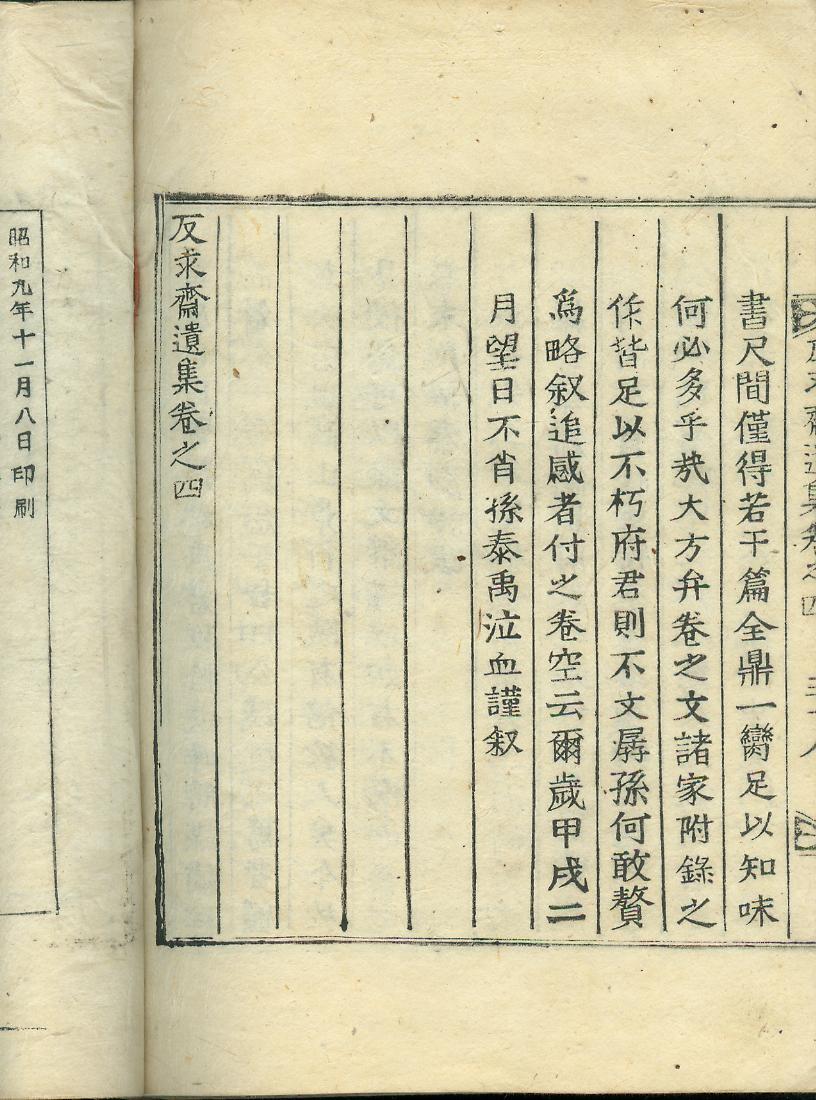 書尺間僅得若干篇全鼎一臠足以知味
何必多乎㢤大方弁卷之文諸家附錄之
作皆足以不朽府君則不文孱孫何敢贅
爲略叙追感者付之卷空云爾歲甲戌二
月望日不肖孫泰禹泣血謹叙
反求齋遺集卷之四
昭和九年十一月八日印刷